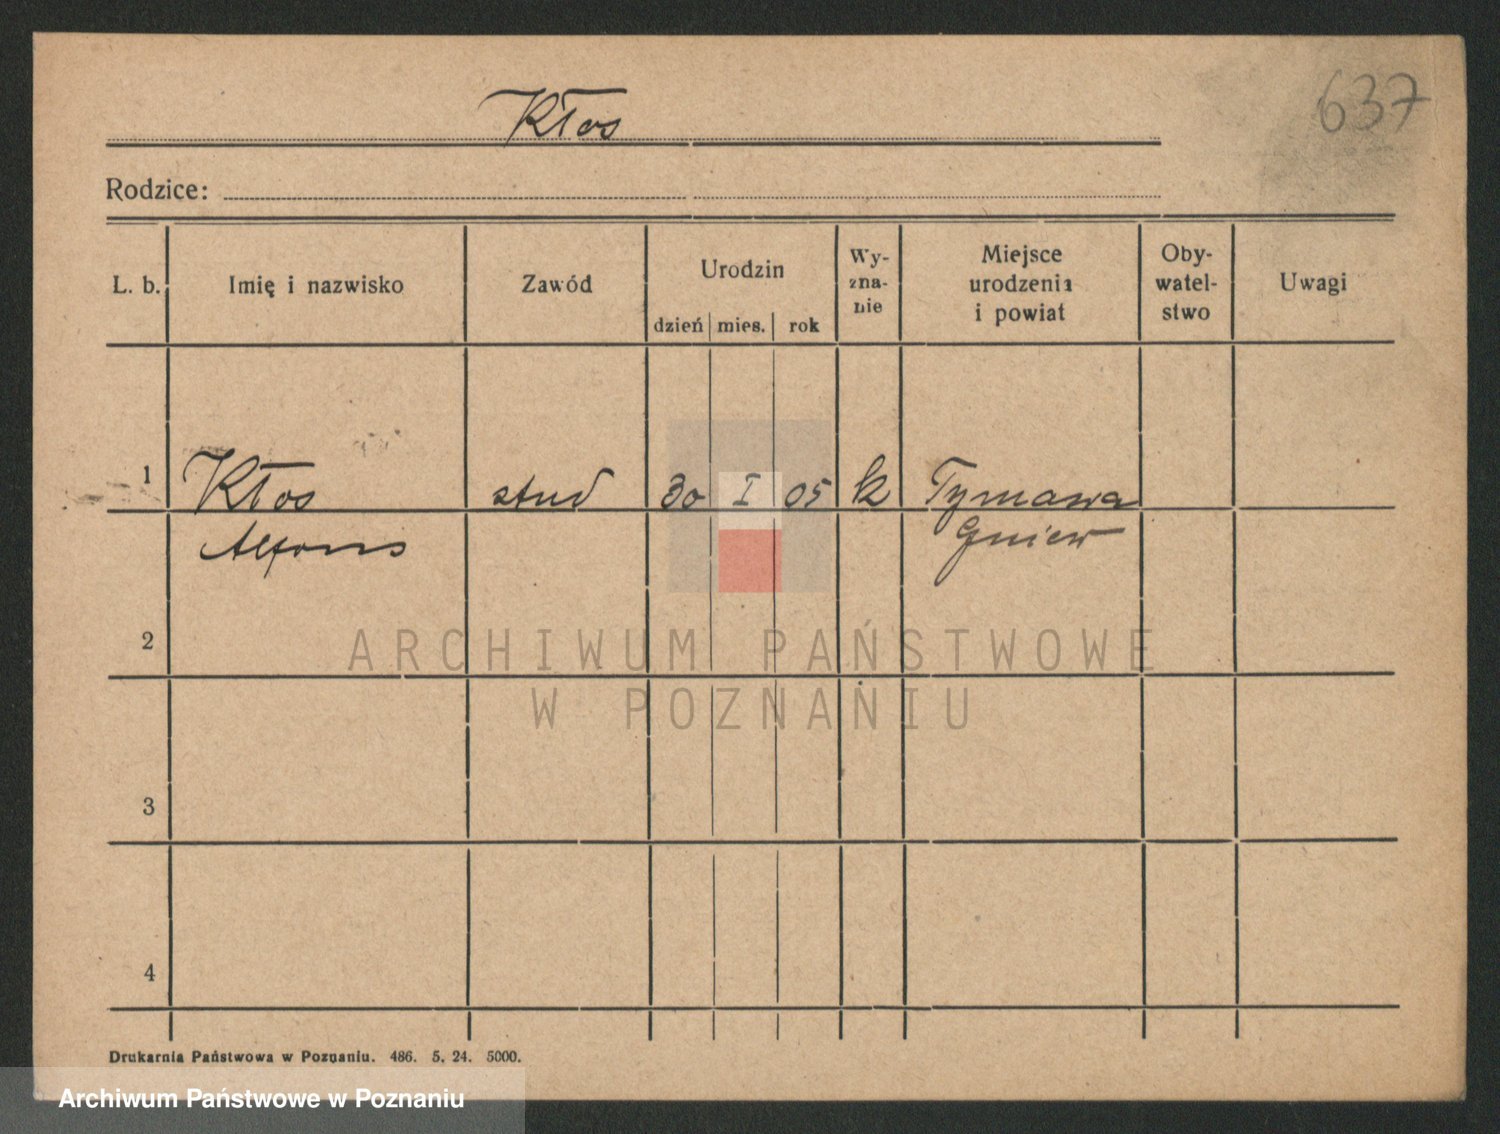 Kłos
637
Rodzice:
L. b.
Imię i nazwisko
Zawód
Urodzin
dzień mies. rok
Wy-
zna-
nie
Miejsce
urodzenia
i powiat
Oby-
watel-
stwo
Uwagi
1 Kłos stud 30 I 05 k Tymawa
Alfons Gniew
2
3
4
Drukarnia Państwowa w Poznaniu. 486. 5. 24. 5000.
ARCHIWUM PAŃSTWOWE
W POZNANIU
Archiwum Państwowe w Poznaniu